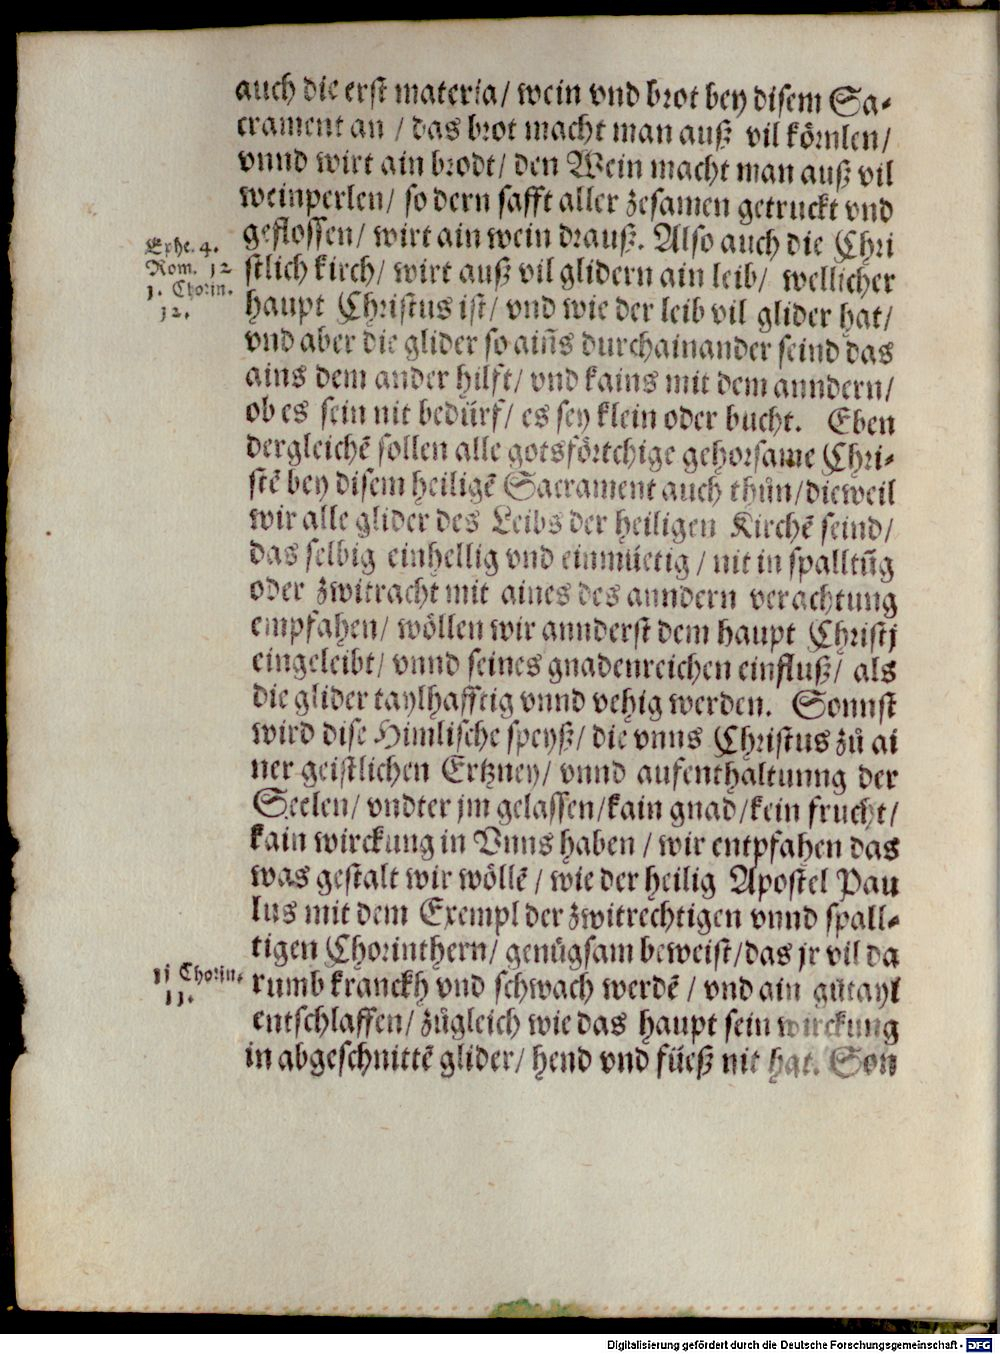 auch die erst materia/ wein vnd brot bey disem Sa-
crament an / das brot macht man auß vil körnlen/
vnnd wirt ain brodt/ den Wein macht man auß vil
weinperlen/ so dern safft aller zesamen getruckt vnd
geflossen/ wirt ain wein drauß. Also auch die Chri
stlich kirch/ wirt auß vil glidern ain leib/ wellicher
haupt Christus ist/ vnd wie der leib vil glider hat/
vnd aber die glider so aiñs durchainander seind das
ains dem ander hilft/ vnd kains mit dem anndern/
ob es sein nit bedürf/ es sey klein oder bucht. Eben
dergleichẽ sollen alle gotsförtchige gehorsame Chri-
stẽ bey disem heiligẽ Sacrament auch thůn/dieweil
wir alle glider des Leibs der heiligen Kirchẽ seind/
das selbig einhellig vnd einmüetig / nit in spalltũg
oder zwitracht mit aines des anndern verachtung
empfahen/ wöllen wir annderst dem haupt Christj
eingeleibt/ vnnd seines gnadenreichen einfluß/ als
die glider taylhafftig vnnd vehig werden. Sonnst
wird dise Himlische speyß/ die vnns Christus zů ai
ner geistlichen Ertzney/ vnnd aufenthaltunng der
Seelen/ vndter jm gelassen/kain gnad/kein frucht/
kain wirckung in Vnns haben / wir entpfahen das
was gestalt wir wöllẽ / wie der heilig Apostel Pau
lus mit dem Exempl der zwitrechtigen vnnd spall-
tigen Chorinthern/ genůgsam beweist/das jr vil da
rumb kranckh vnd schwach werdẽ / vnd ain gůtayl
entschlaffen/ zůgleich wie das haupt sein wirckung
in abgeschnittẽ glider/ hend vnd füeß nit hat. Son
Ephe. 4.
Rom. 12
1. Chorin.
12.
1j Chorin-
11.
Digitalisierung gefördert durch die Deutsche Forschungsgemeinschaft - DFG